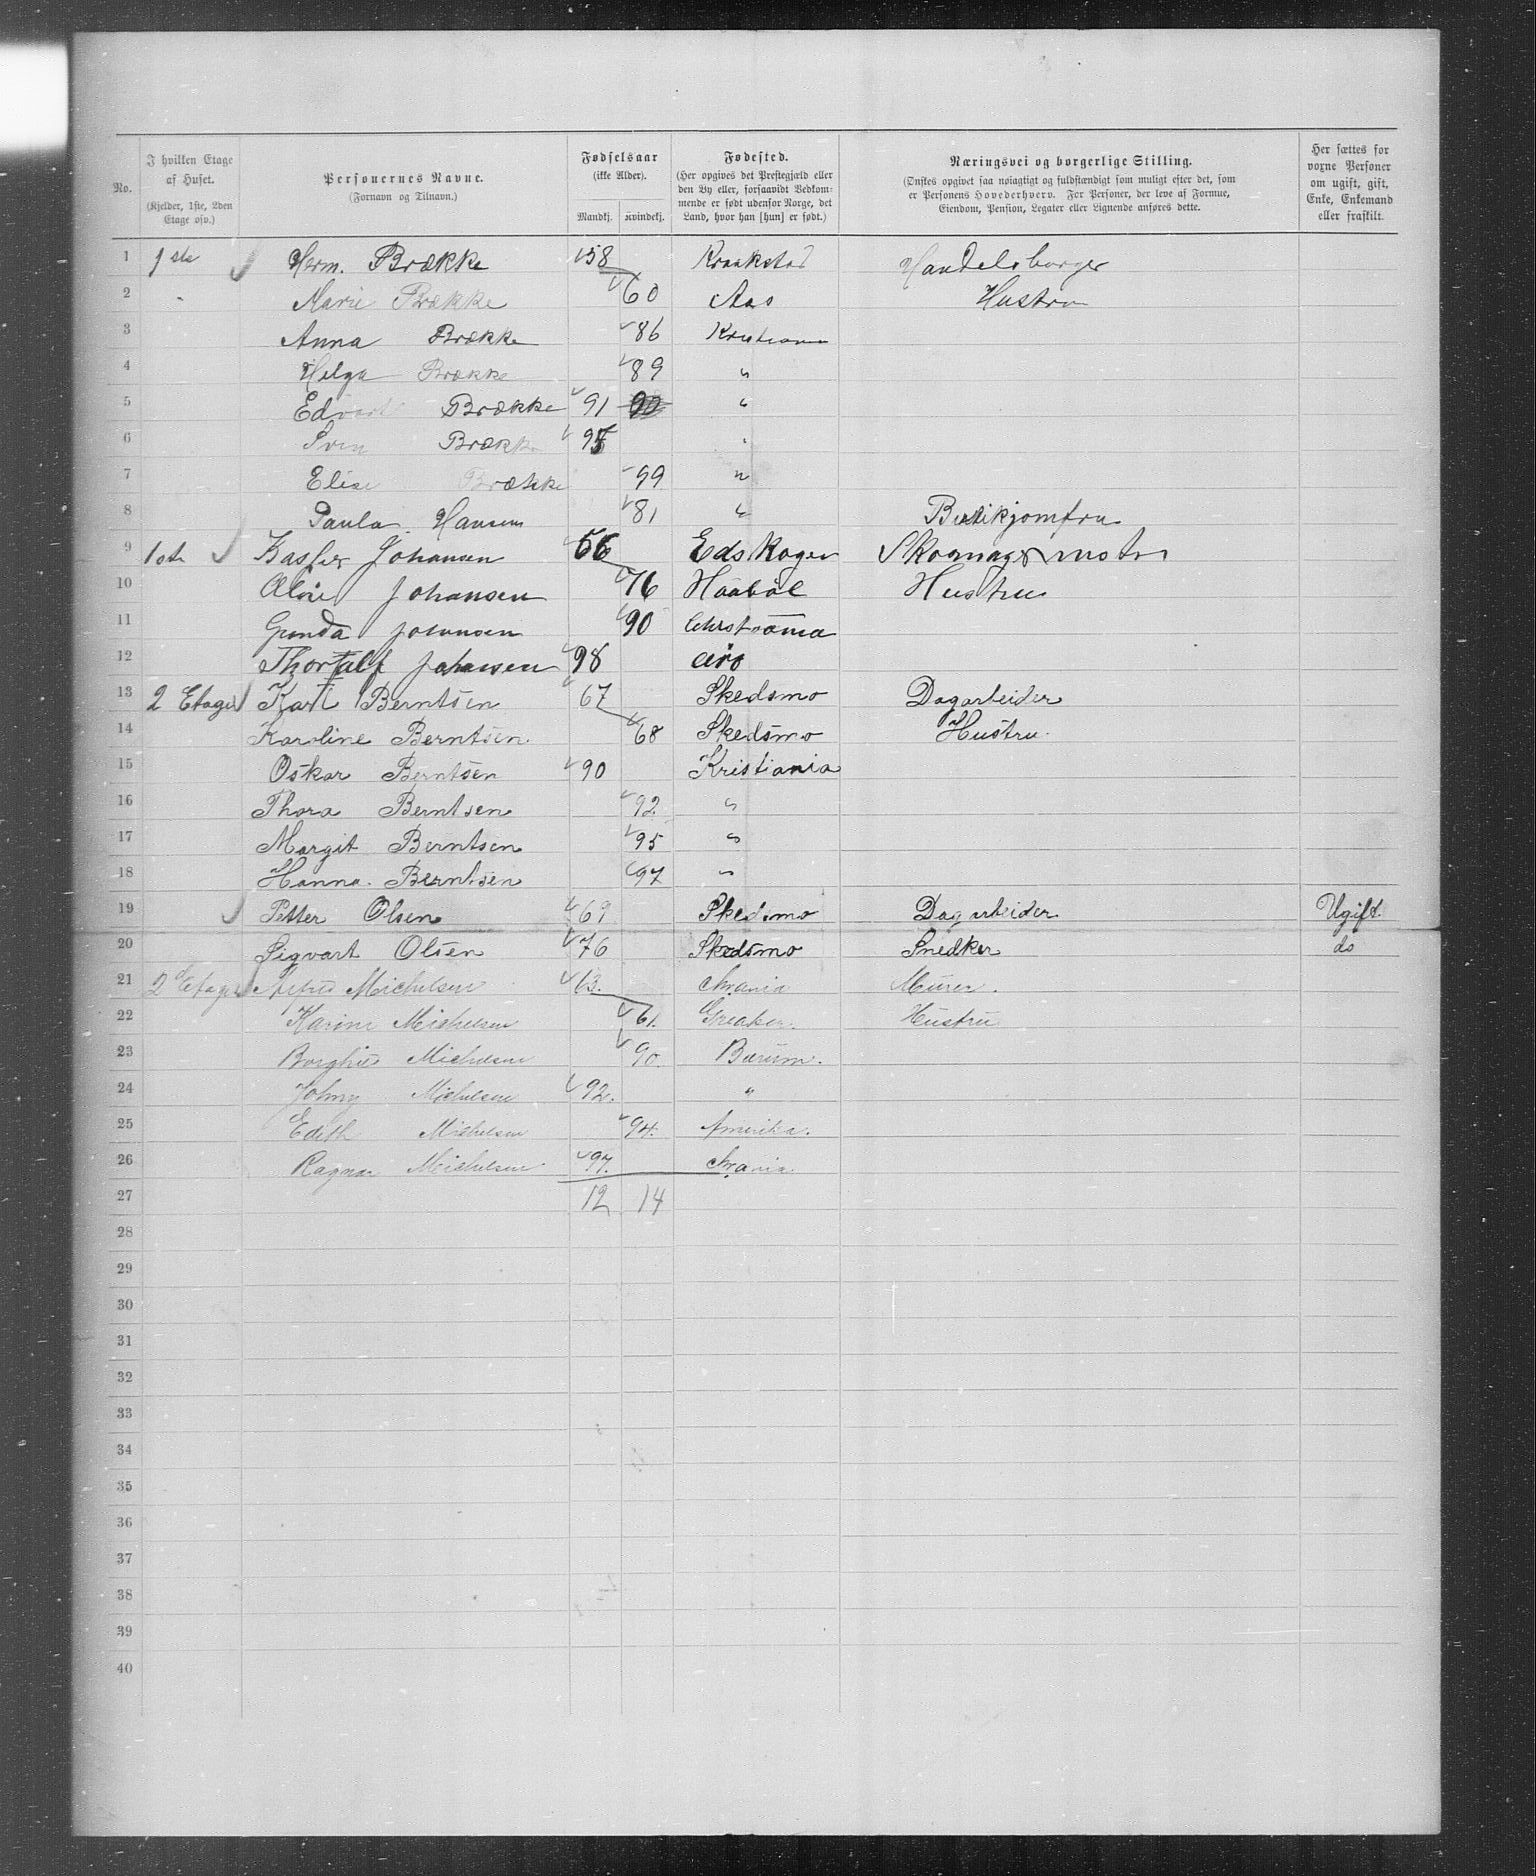 No. | I hvilken Etage af Huset. (Kjelder, 1ste, 2den Etage osv.) | Personernes Navne. (Fornavn og Tilnavn.) | Fødselsaar (ikke Alder). Mandkj. | Kvindekj. | Fødested. (Her opgives det Prestegjæld eller den By eller, forsaavidt Vedkommende er født udenfor Norge, det Land, hvor han [hun] er født.) | Næringsvei og borgerlige Stilling. (Ønskes opgivet saa nøiagtigt og fuldstændigt som muligt efter det, som er Personens Hovederhverv. For Personer, der leve af Formue, Eiendom, Pension, Legater eller Lignende anføres dette. | Her sættes for voxne Personer om ugift, gift, Enke, Enkemand eller fraskilt.
1 1ste Herm. Brække 58 Kraakstad Handelsborger
2 " Marie Brække 60 Aas Hustru
3 Anna Brække 86 Kristiania
4 Helga Brække 89 "
5 Edvart Brække 91 90 "
6 Sven Brække 95 "
7 Elise Brække 99 "
8 Paula Hansen 81 " Butikjomfru
9 1ste Kasper Johansen 56 Edskoger
10 Johansen 76 Haabøl Hustru
11 Gunda Johansen 90 Christiania
12 Thoralf Johansen 98
13 2 Etage Karl Berntsen 67 Skedsmo Dagarbeider
14 Karoline Berntsen 68 Skedsmo Hustru.
15 Oskar Berntsen 90 Kristiania
16 Thora Berntsen 92 "
17 Margit Berntsen 95 "
18 Hanna. Berntsen 97 "
19 Petter Olsen 69 Skedsmo Dagarbeider Ugift.
20 Sigvart Olsen 76 Skedsmo Snedker do
21 2 Etage Alfred Michelsen 63. Chrania Murer.
22 Karine Michelsen 61. Greaker. Hustru
23 Borghild Michelsen 90. Bærum.
24 Johny Michelsen 92. "
25 Edith Michelsen 94. Amerika.
26 Ragnar Michelsen 97. Chrania
27 12 14
28
29
30
31
32
33
34
35
36
37
38
39
40